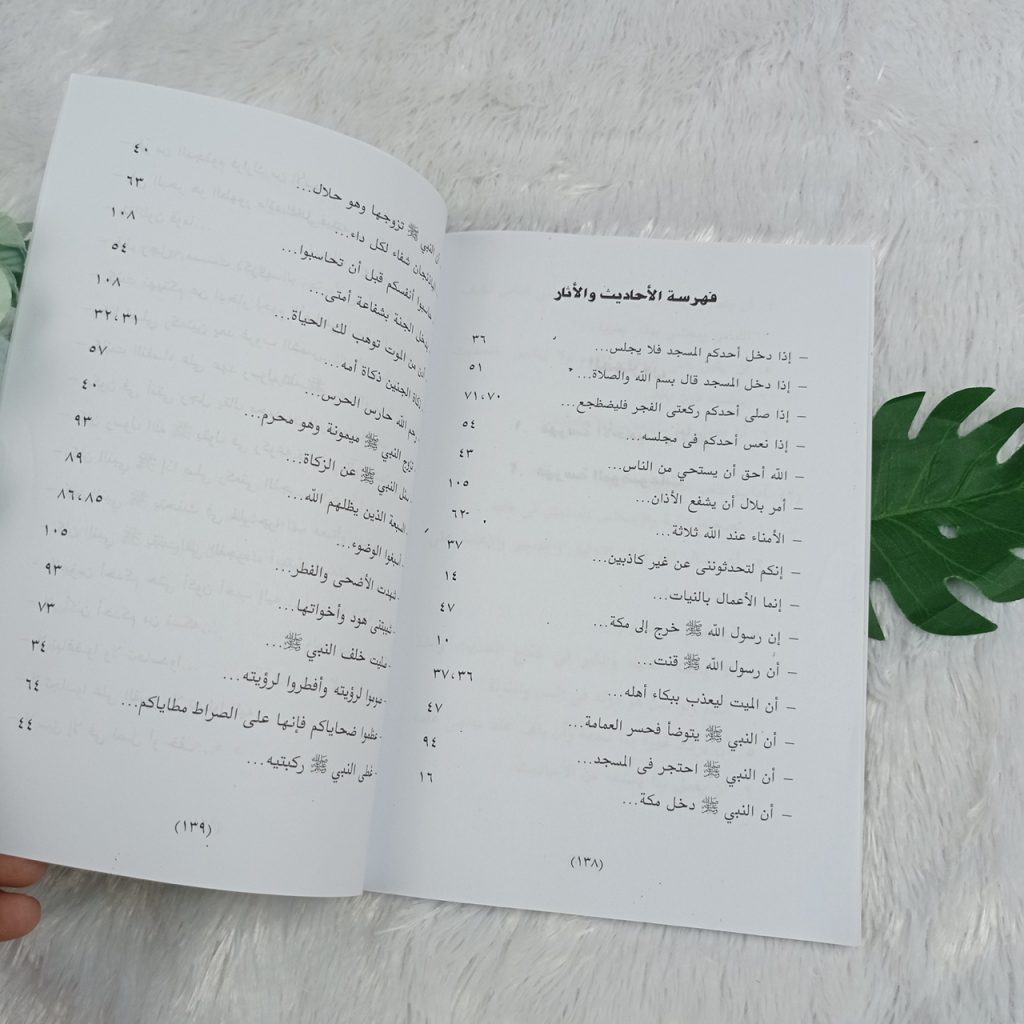 فهرسة الأحاديث والأثار
– إذا دخل أحدكم المسجد فلا يجلس... ٣٦
– إذا دخل المسجد قال بسم الله والصلاة... ٥١
– إذا صلى أحدكم ركعتى الفجر فليضظجع... ٧١،٧٠
– إذا نعس أحدكم فى مجلسه... ٥٤
– الله أحق أن يستحي من الناس... ٤٣
– أمر بلال أن يشفع الأذان... ١٠٥
– الأمناء عند الله ثلاثة... ٦٢
– إنكم لتحدثوننى عن غير كاذبين... ٣٧
– إنما الأعمال بالنيات... ١٤
– إن رسول الله ﷺ خرج إلى مكة... ٤٧
– أن رسول الله ﷺ قنت... ١٠
– أن الميت ليعذب ببكاء أهله... ٣٧،٣٦
– أن النبي ﷺ يتوضأ فحسر العمامة... ٤٧
– أن النبي ﷺ احتجر فى المسجد... ٩٤
– أن النبي ﷺ دخل مكة... ١٦
(١٣٨)
أن النبي ﷺ تزوجها وهو حلال... ٤٠
شفاء لكل داء... ٦٣
أنفسكم قبل أن تحاسبوا... ١٠٨
الجنة بشفاعة أمتى... ٥٤
من الموت توهب لك الحياة... ١٠٨
ذكاة الجنين ذكاة أمه... ٣٢،٣١
الله حارس الحرس... ٥٧
تزوج النبي ﷺ ميمونة وهو محرم... ٤٠
النبي ﷺ عن الزكاة... ٩٣
الذين يظلهم الله... ٨٩
الوضوء... ٨٦،٨٥
الأضحى والفطر... ١٠٥
هود وأخواتها... ٩٣
صليت خلف النبي ﷺ... ٧٣
صوموا لرؤيته وأفطروا لرؤيته... ٣٤
ضحاياكم فإنها على الصراط مطاياكم... ٦٤
غطى النبي ﷺ ركبتيه... ٤٤
(١٣٩)